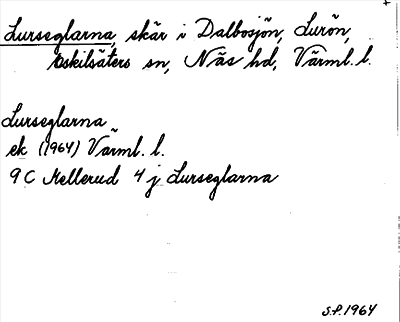 Lurseglarna, skär i Dalbosjön, Lurön,
Eskilsäters sn, Näs hd, Värml. l.
Lurseglarna
ek (1964) Värml. l.
9C Mellerud 4j Lurseglarna
S.P. 1964